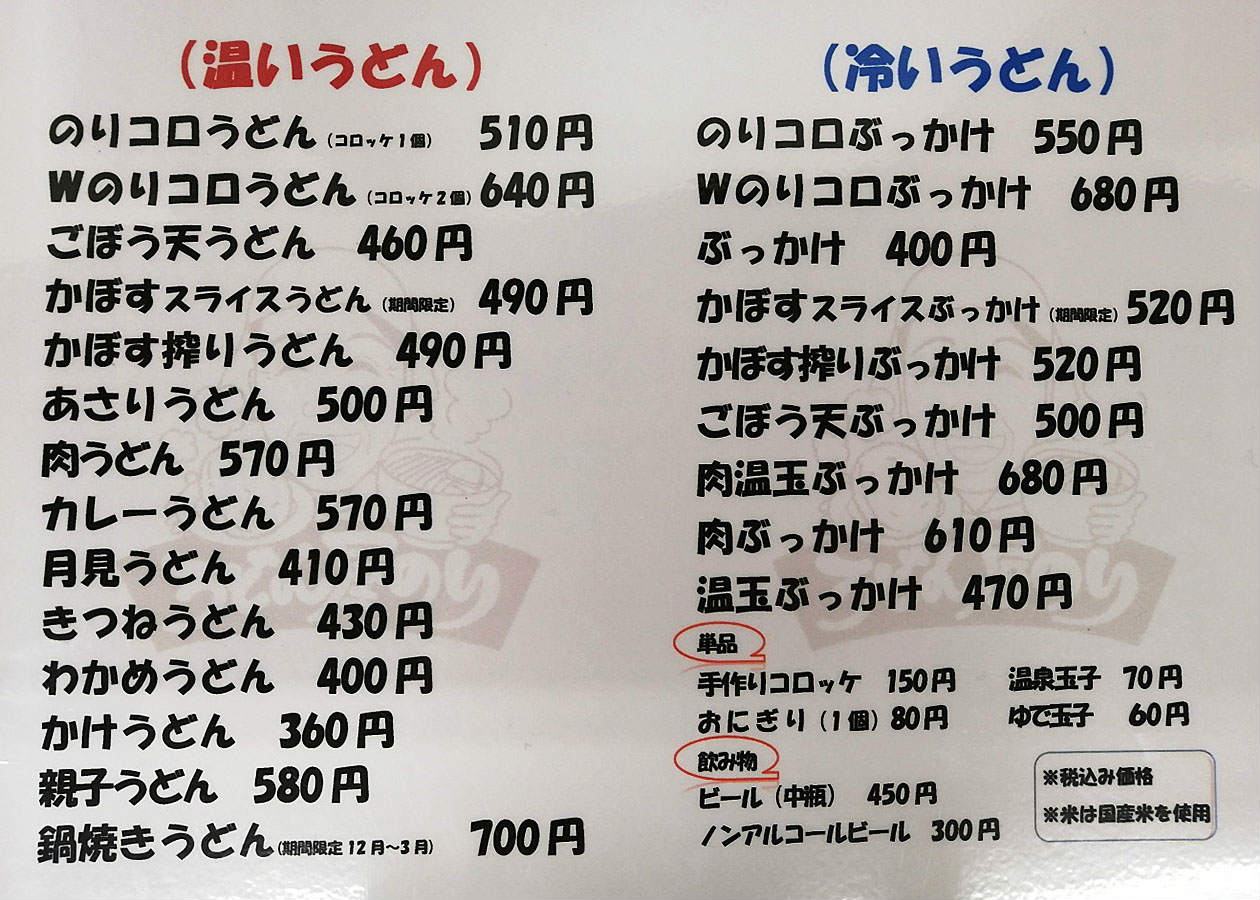 (温いうどん)
のりコロうどん(コロッケ1個) 510円
Wのりコロうどん(コロッケ2個) 640円
ごぼう天うどん 460円
かぼすスライスうどん(期間限定) 490円
かぼす搾りうどん 490円
あさりうどん 500円
肉うどん 570円
カレーうどん 570円
月見うどん 410円
きつねうどん 430円
わかめうどん 400円
かけうどん 360円
親子うどん 580円
鍋焼きうどん(期間限定12月~3月) 700円
(冷いうどん)
のりコロぶっかけ 550円
Wのりコロぶっかけ 680円
ぶっかけ 400円
かぼすスライスぶっかけ(期間限定) 520円
かぼす搾りぶっかけ 520円
ごぼう天ぶっかけ 500円
肉温玉ぶっかけ 680円
肉ぶっかけ 610円
温玉ぶっかけ 470円
単品
手作りコロッケ 150円 温泉玉子 70円
おにぎり(1個) 80円 ゆで玉子 60円
飲み物
ビール(中瓶) 450円
ノンアルコールビール 300円
※税込み価格
※米は国産米を使用